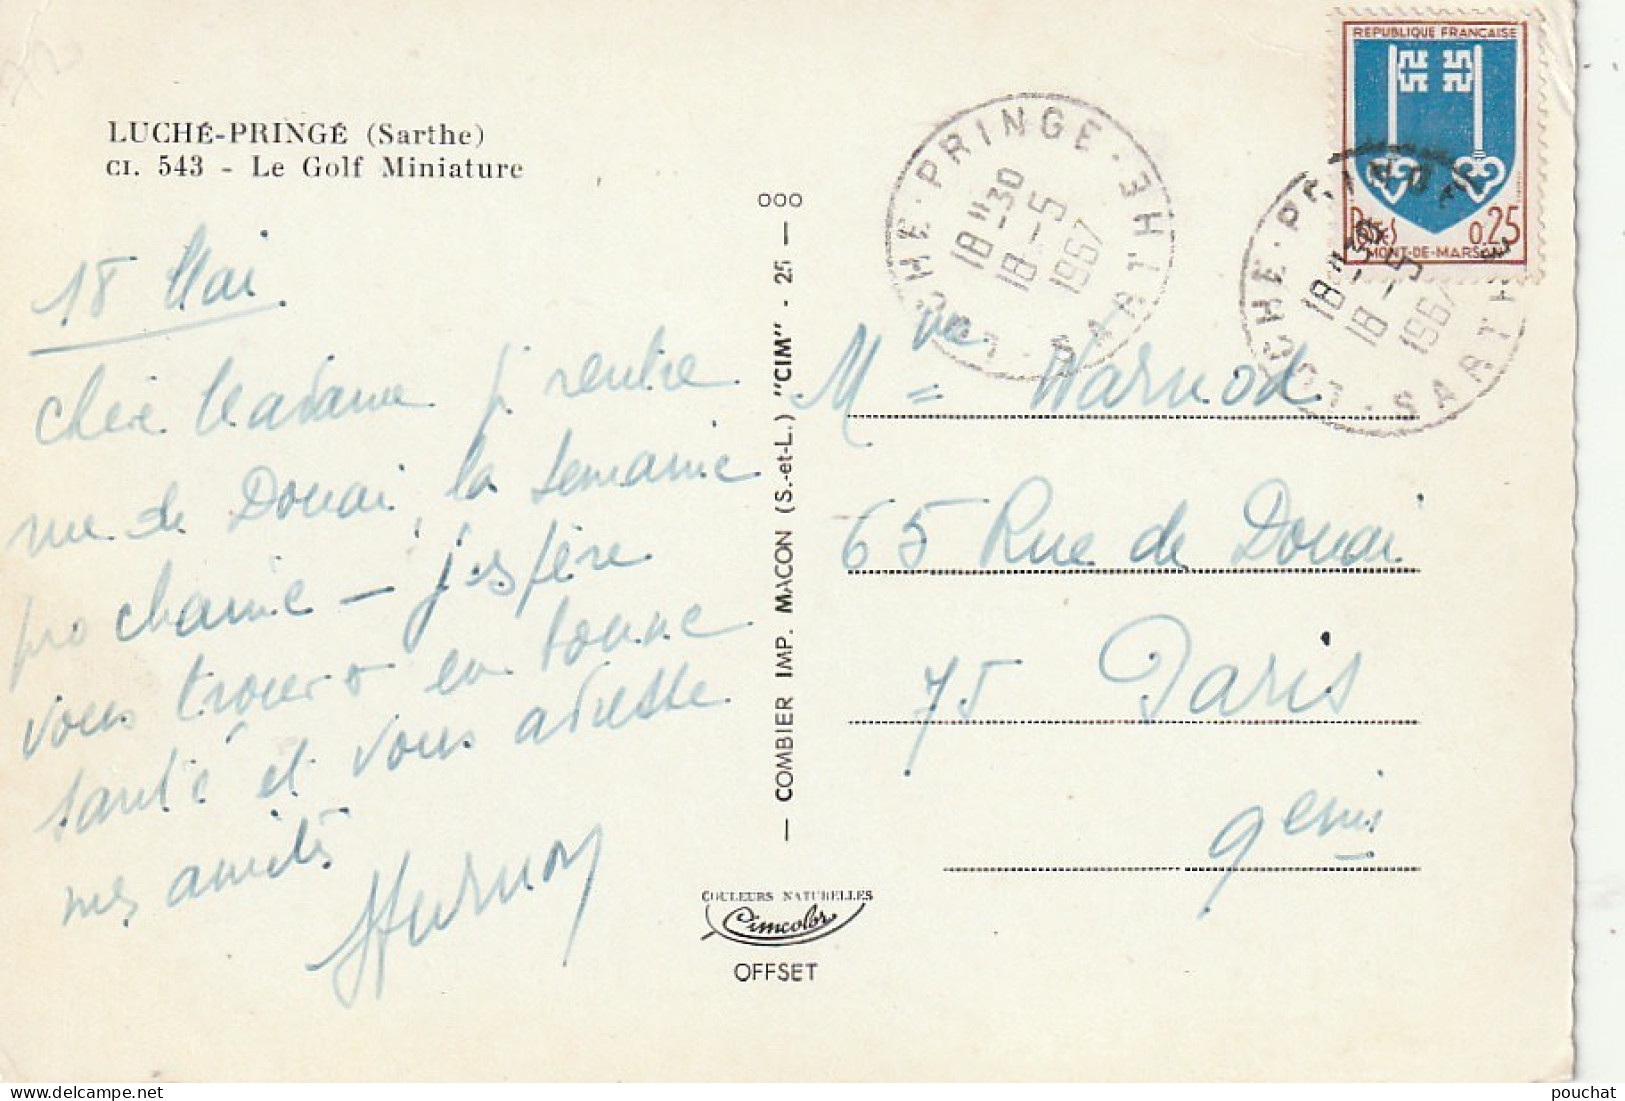 LUCHÉ-PRINGÉ (Sarthe)
CI. 543 - Le Golf Miniature
18 Mai
Chère Madame je rentre
rue de Douai, la semaine
prochaine — j'espère
vous trouver en bonne
santé et vous adresse
mes amitiés
ooo
— COMBIER IMP. MACON (S.-et-L.) "CIM" - 25 —
COULEURS NATURELLES
Cimcolor
OFFSET
LUCHE-PRINGE · SARTHE
18 H 30
18 - 5
1967
REPUBLIQUE FRANÇAISE
POSTES 0.25
MONT-DE-MARSAN
LUCHE-PRINGE · SARTHE
18 H 30
18 - 5
1967
Mme Warnod
65 Rue de Douai
75 Paris
9eme
pouchat